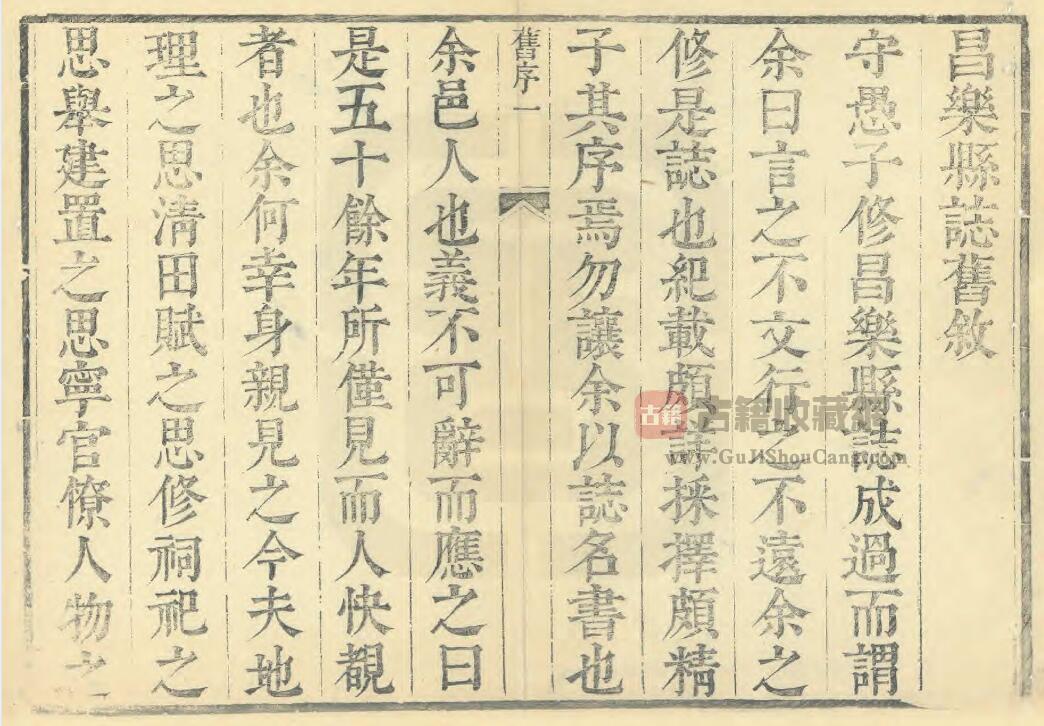 昌樂縣誌舊敘
守愚子修昌樂縣誌成過而謂
余曰言之不文行之不遠余之
修是誌也紀載頗詳採擇頗精
子其序焉勿讓余以誌名書也
舊序一
余邑人也義不可辭而應之曰
是五十餘年所僅見而人快覩
者也余何幸身親見之今夫地
理之思清田賦之思修祠祀之
思舉建置之思寧官僚人物之
古籍 古籍收藏網
www.GuJiShouCang.com